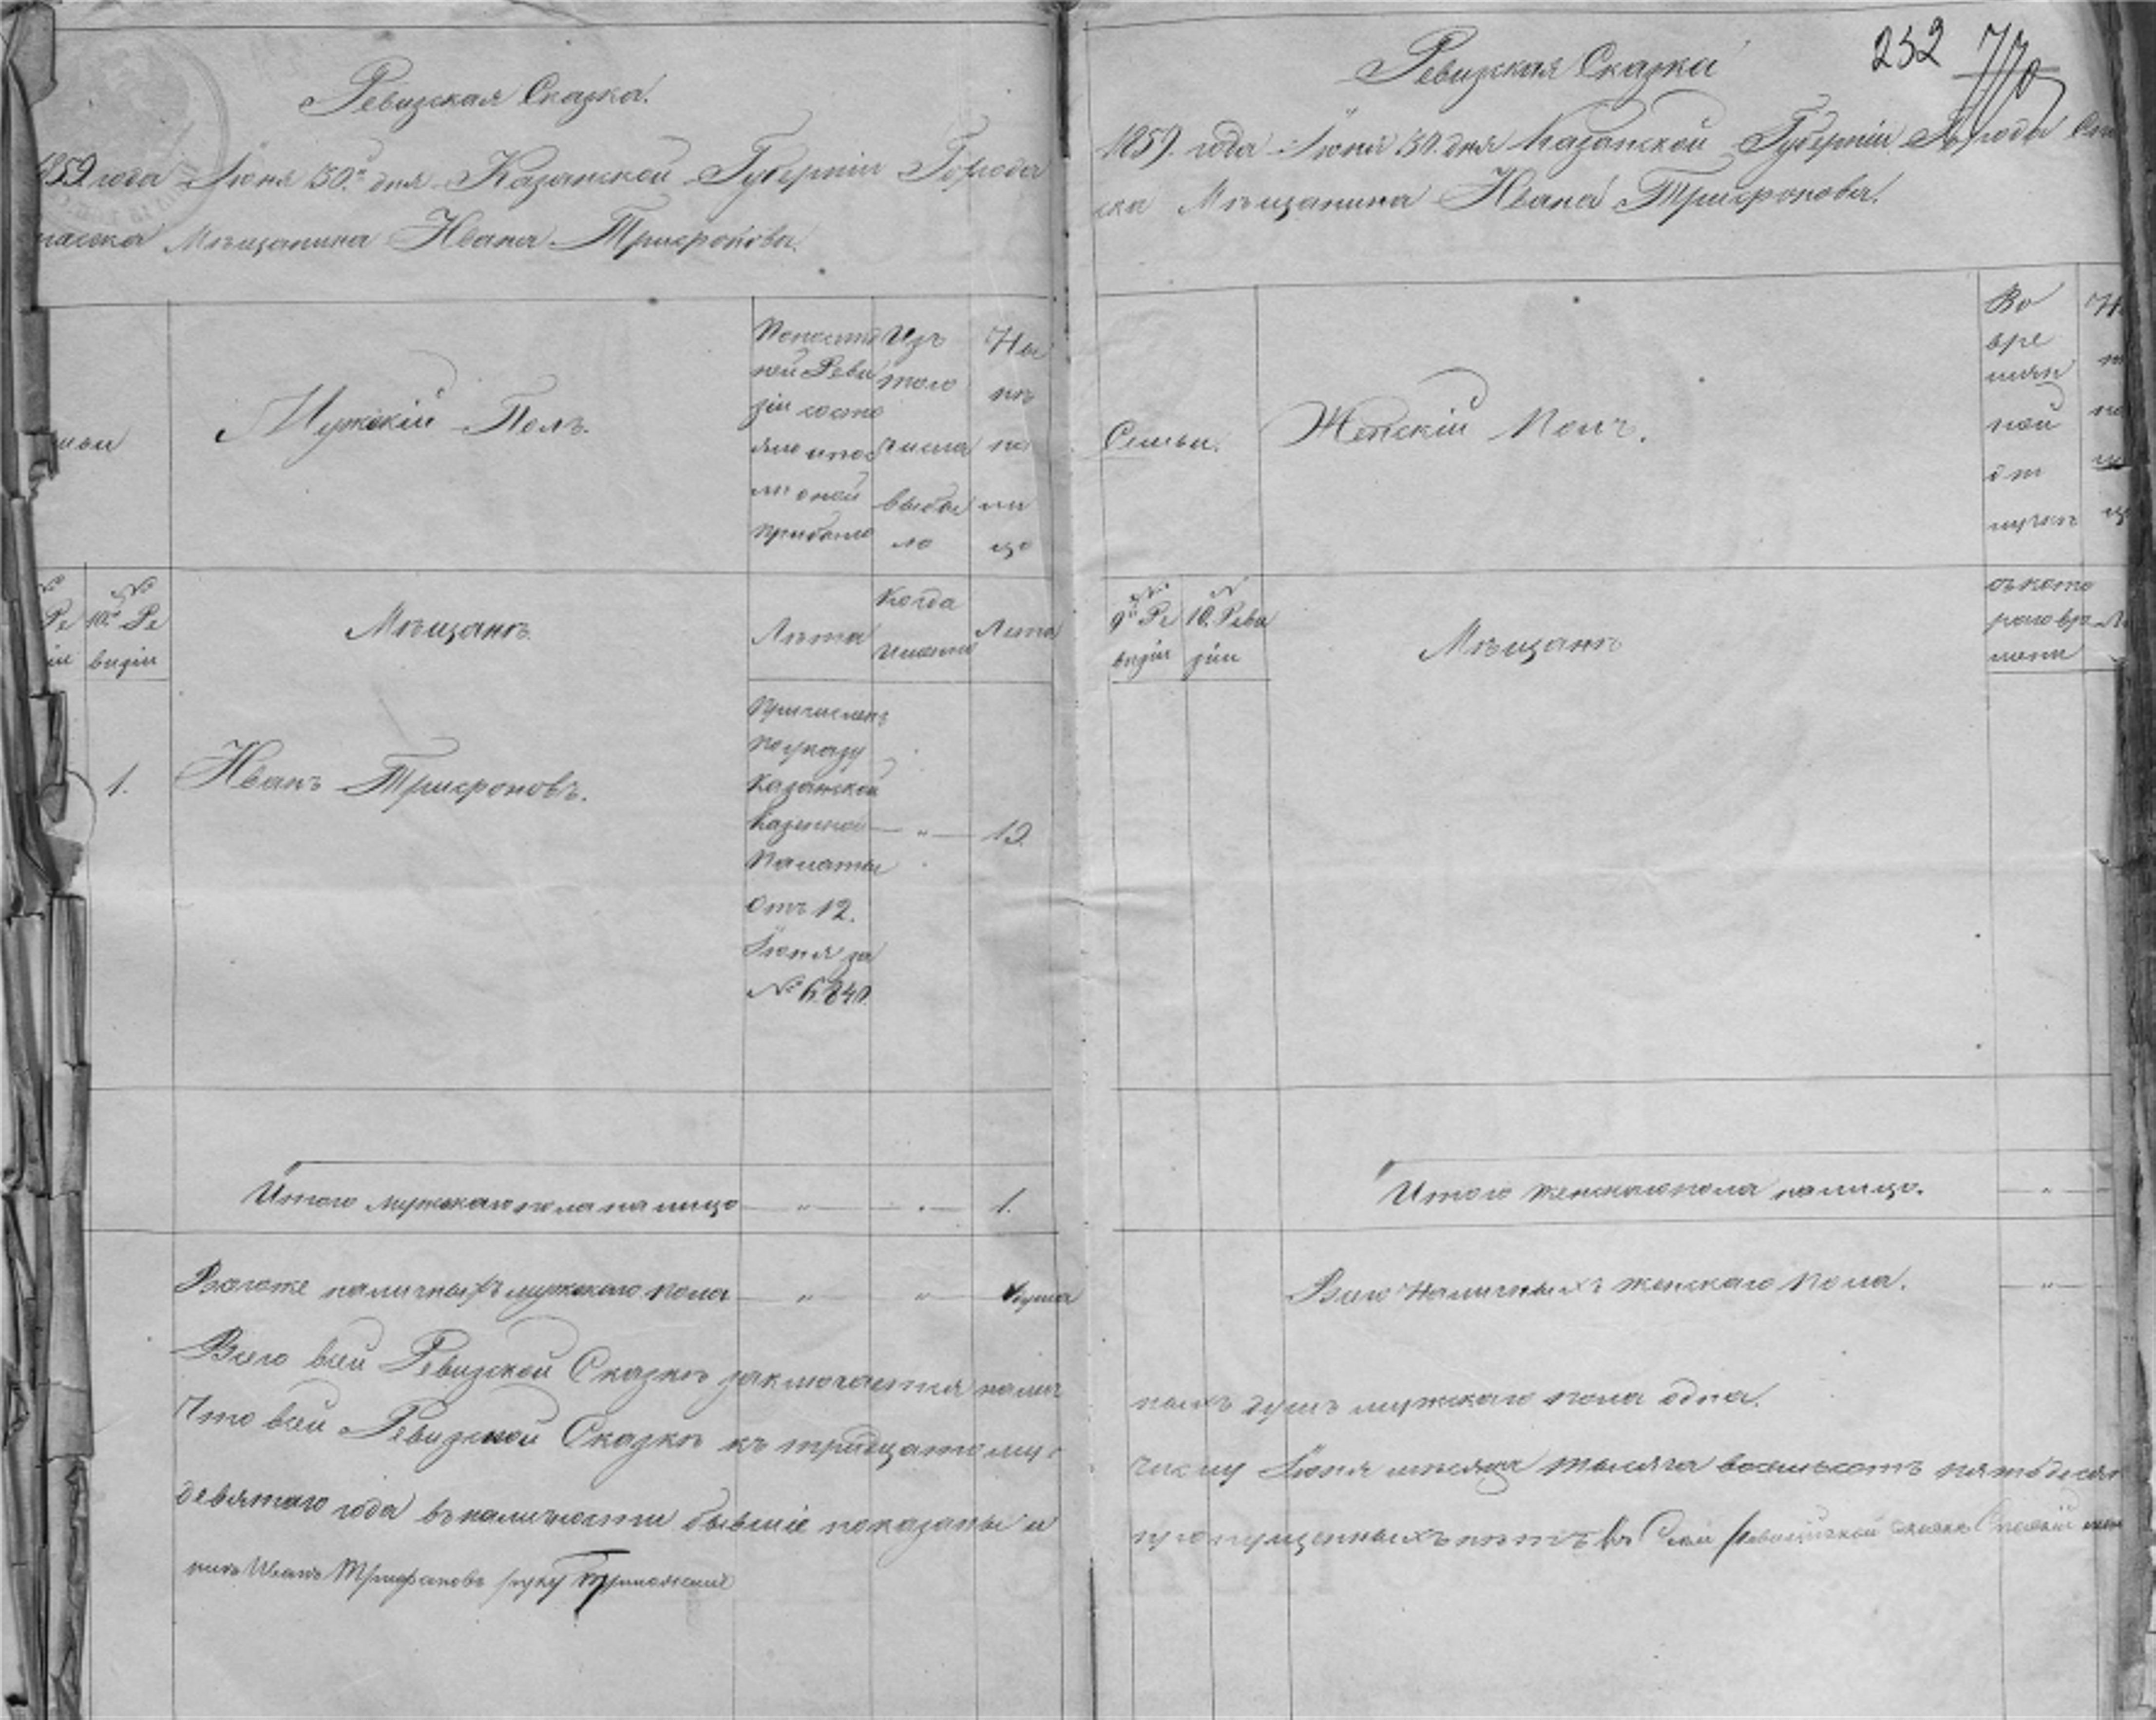 Ревизская Сказка.
1859 года Июня 30.го дня Казанской Губерніи Города
Спасска Мѣщанина Ивана Трифонова.
Семьи
Мужскій Полъ.
Попослѣд
ней Реви
зіи состо
яло и пос
лѣ оной
прибыло
Изъ
того
числа
выбы
ло
Ны
нѣ
на
ли
цо
№
10.й Ре
визіи
Мѣщанъ
Лѣта
Когда
именно
Лѣта
1.
Иванъ Трифоновъ.
Причисленъ
по указу
Казанской
Казенной
Палаты
отъ 12.
Июня за
№ 6840.
— " —
19.
Итого мужскаго пола на лицо — " — " — 1.
Всего же наличныхъ мужскаго пола — " — " — 1 душа
Всего в сей Ревизской Сказкѣ заключается налич
Что в сей Ревизской Сказкѣ къ тридцатому
девятаго года въ наличности бывшіе показаны и
нинъ Иванъ Трифоновъ руку приложилъ
232
Ревизская Сказка
1859. года Июня 30. дня Казанской Губерніи Города Спа
ска Мѣщанина Ивана Трифонова.
Семьи.
Женскій Полъ.
Во
вре
мян
ной
от
лучкѣ
№
9й Ре
визіи
№
10. Реви
зіи
Мѣщанъ
съ кото
раго вре
мени
Итого женскаго пола на лицо. — " —
Всего наличныхъ женскаго пола. — " —
ныхъ душъ мужскаго пола одна.
числу Июня мѣсяца тысяча восемьсотъ пятьдесят
пропущенныхъ нѣтъ Къ Сей ревизской сказкѣ Спаскій мѣща